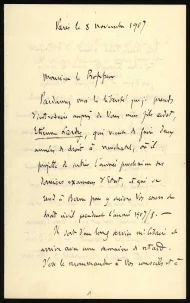 Paris le 3 novembre 1907
Monsieur le Professeur
Pardonnez moi la liberté que je prends
d'introduire auprès de Vous mon fils cadet,
qui vient de faire deux
années de droit à Neuchâtel, où il
projette de subir l'année prochaine ses
derniers examens d'Etat, et qui se
rend à Berne pour y suivre Vos cours de
droit civil pendant l'année 1907/8.
Il sort d'un long service militaire et
arrive avec une semaine de retard.
J'ose le recommander à Vos conseils et à